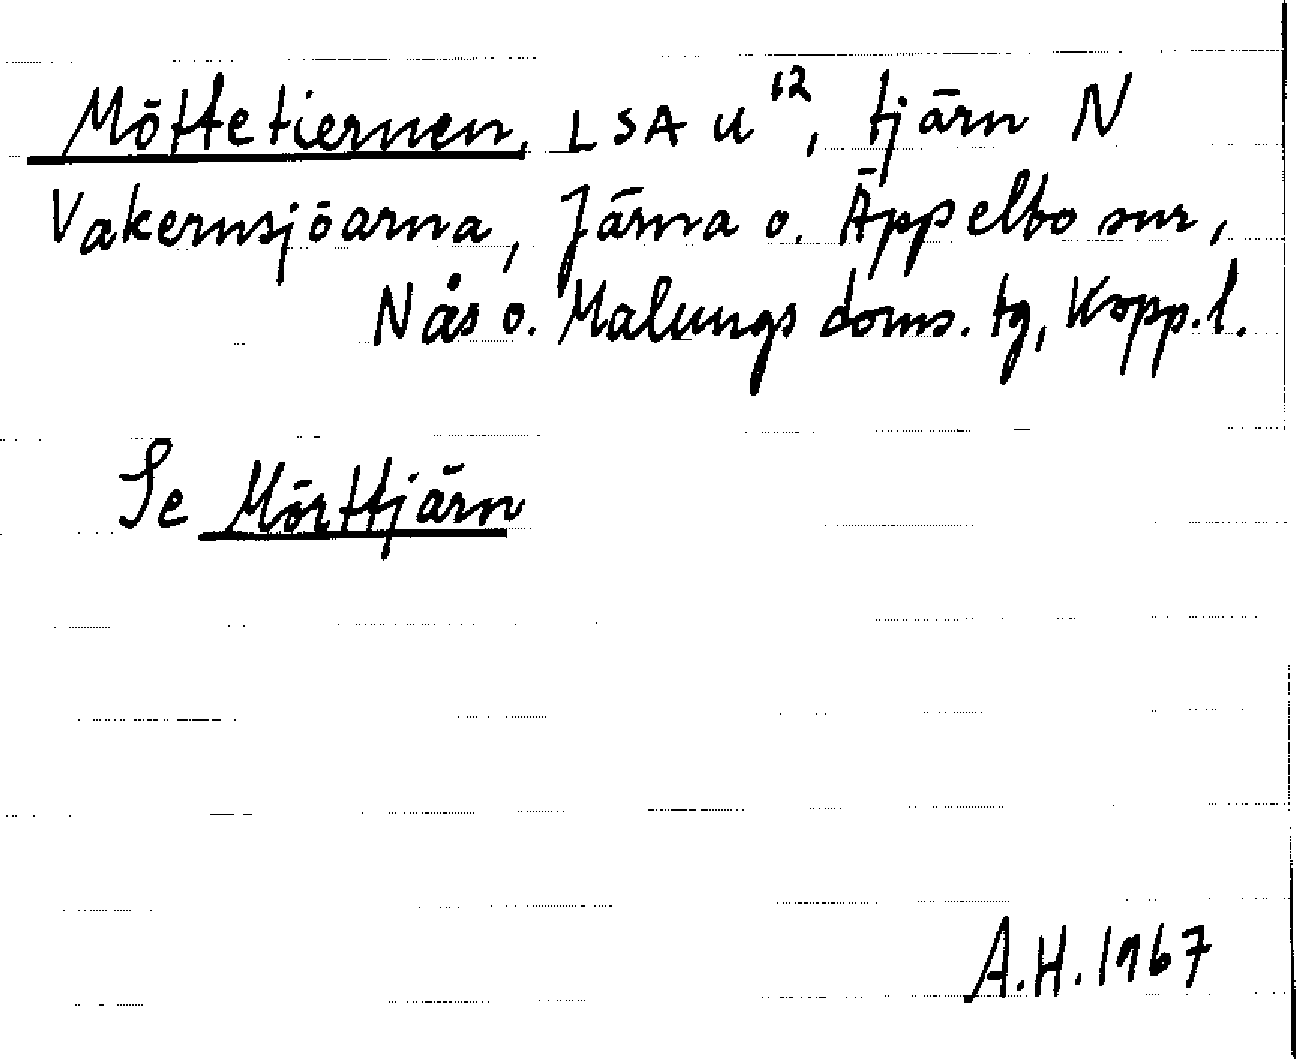 Möttetiernen, LSA U¹², tjärn N
Vakernsjöarna, Järna o. Äppelbo snr,
Nås o. Malungs doms. tg, Kopp. l.
Se Mörttjärn
A.H. 1967